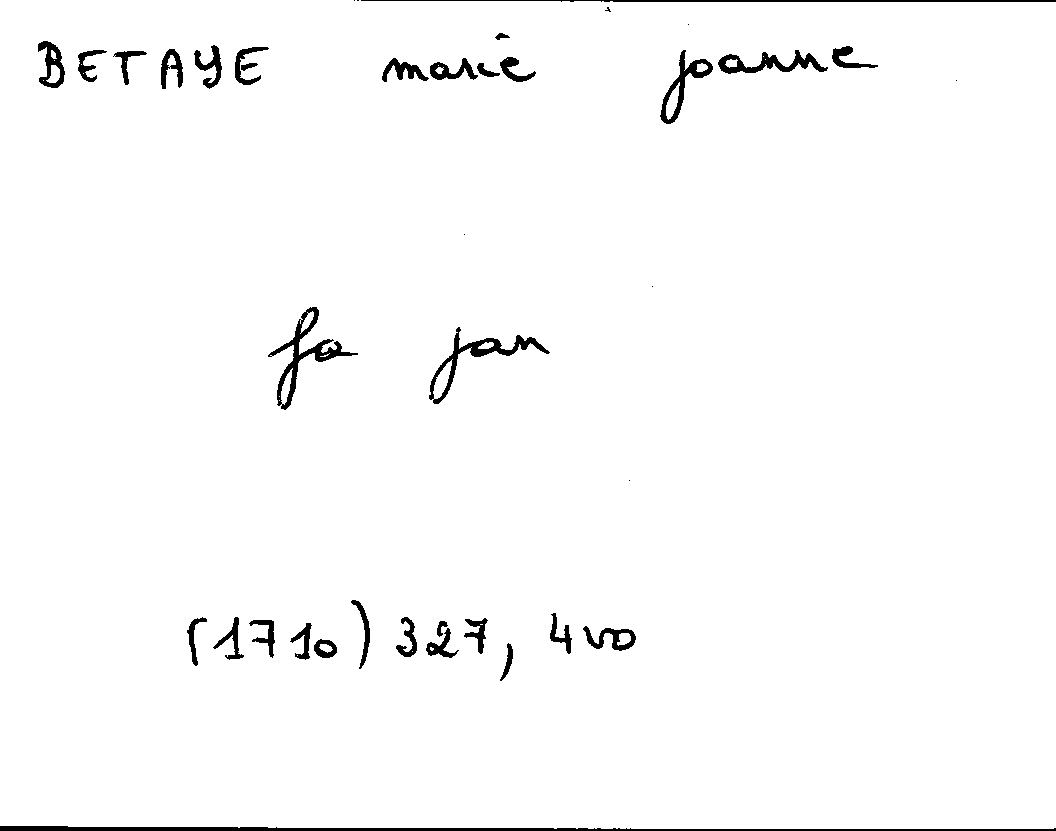 BETAYE marie joanne
fa jan
(1710) 327, 4vo